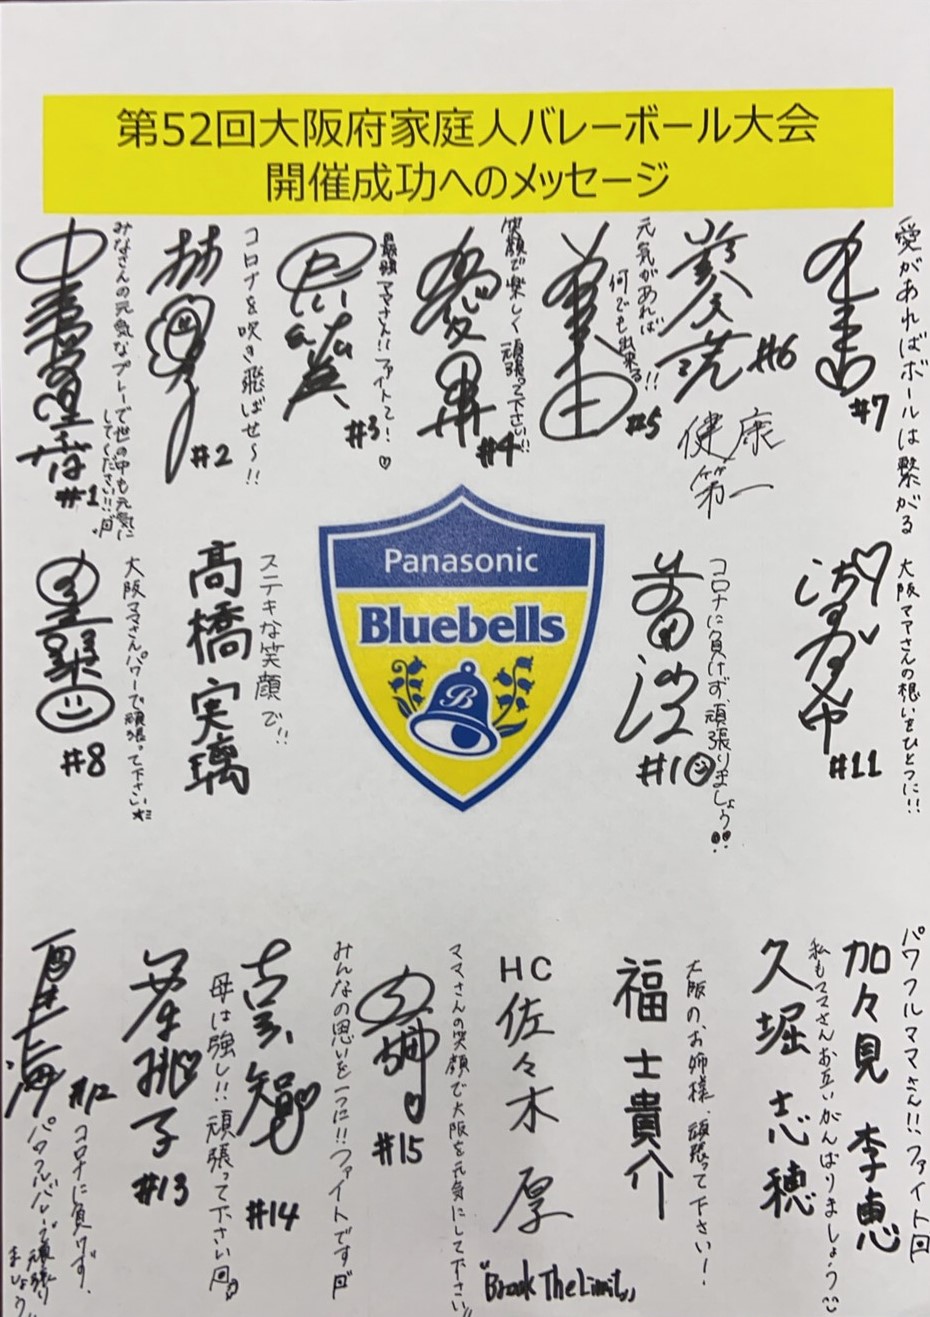 第52回大阪府家庭人バレーボール大会
開催成功へのメッセージ
愛があればボールは繋がる
#7
#6
健康
第一
元気があれば
何でも出来る!!
#5
笑顔で楽しく頑張って下さい!!
#4
最強ママさん!!ファイト!
#3
コロナを吹き飛ばせ〜!!
#2
みなさんの元気なプレーで世の中も元気に
してください!!
#1
Panasonic
Bluebells
B
大阪ママさんの想いをひとつに!!
#11
コロナに負けず、頑張りましょう
#10
ステキな笑顔で!!
高橋実璃
大阪ママさんパワーで頑張って下さい
#8
パワフルママさん!!ファイト
加々見 李恵
私もママさんお互いがんばりましょう
久堀 志穂
大阪のお姉様、頑張って下さい!
福 士貴介
HC
佐々木 厚
"Break The Limit"
ママさんの笑顔で大阪を元気にして下さい
#15
みんなの思いを一つに!!ファイトです
#14
母は強し!!頑張って下さい
#13
#12
コロナに負けず、
パワフルバレーで頑張り
ましょう